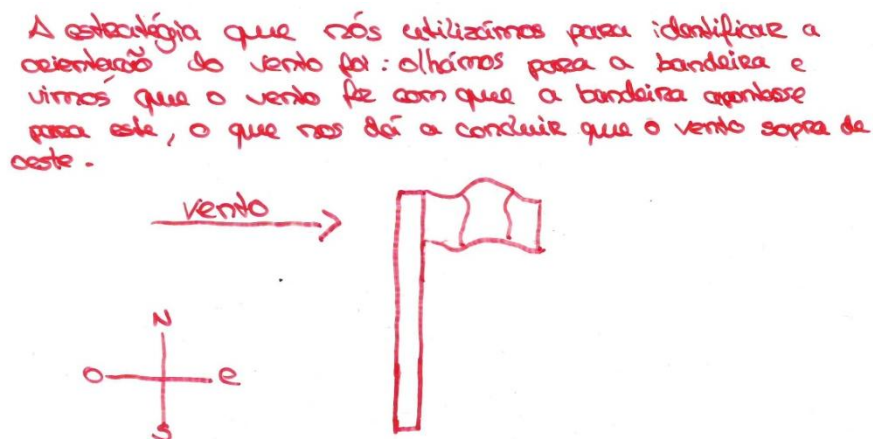 A estratégia que nós utilizámos para identificar a
orientação do vento foi: olhámos para a bandeira e
vimos que o vento fez com que a bandeira apontasse
para este, o que nos dá a concluir que o vento sopra de
oeste.
vento
N
O e
S